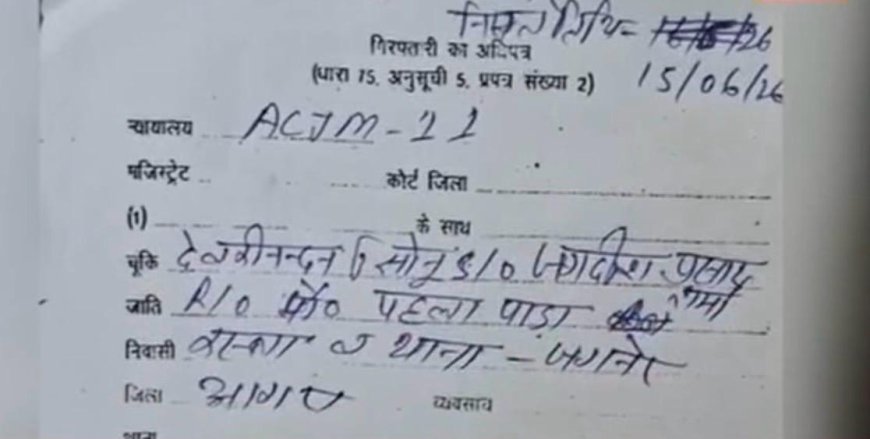 नियत तिथि- 26
गिरफ्तारी का अधिपत्र
15/06/26
(धारा 75, अनुसूची 5, प्रपत्र संख्या 2)
न्यायालय ACJM-11
मजिस्ट्रेट कोर्ट जिला
(1) के साथ
चूकि देवकीनन्दन सोनू S/O जगदीश प्रसाद
शर्मा
जाति R/O पहला पाड़ा
निवासी कस्बा व थाना - जगनेर
जिला आगरा व्यवसाय
थाना